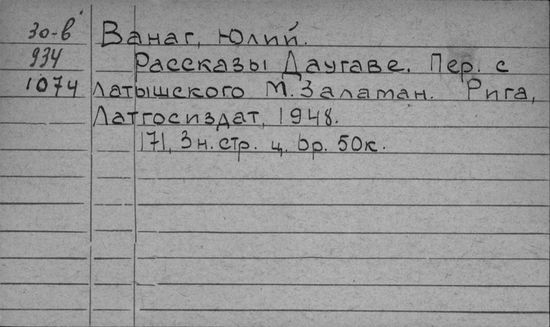 30-в Ванаг, Юлий.
934 Рассказы Даугаве. Пер. с
1074 латышского М. Заламан. Рига,
Латгосиздат, 1948.
171, 3 н. стр. ц. 6р. 50к.